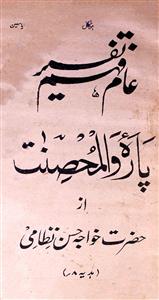 عام فہم تفسیر
پارۂ والمحصنت
از
حضرت خواجہ حسن نظامی
(ہدیہ ۸/)